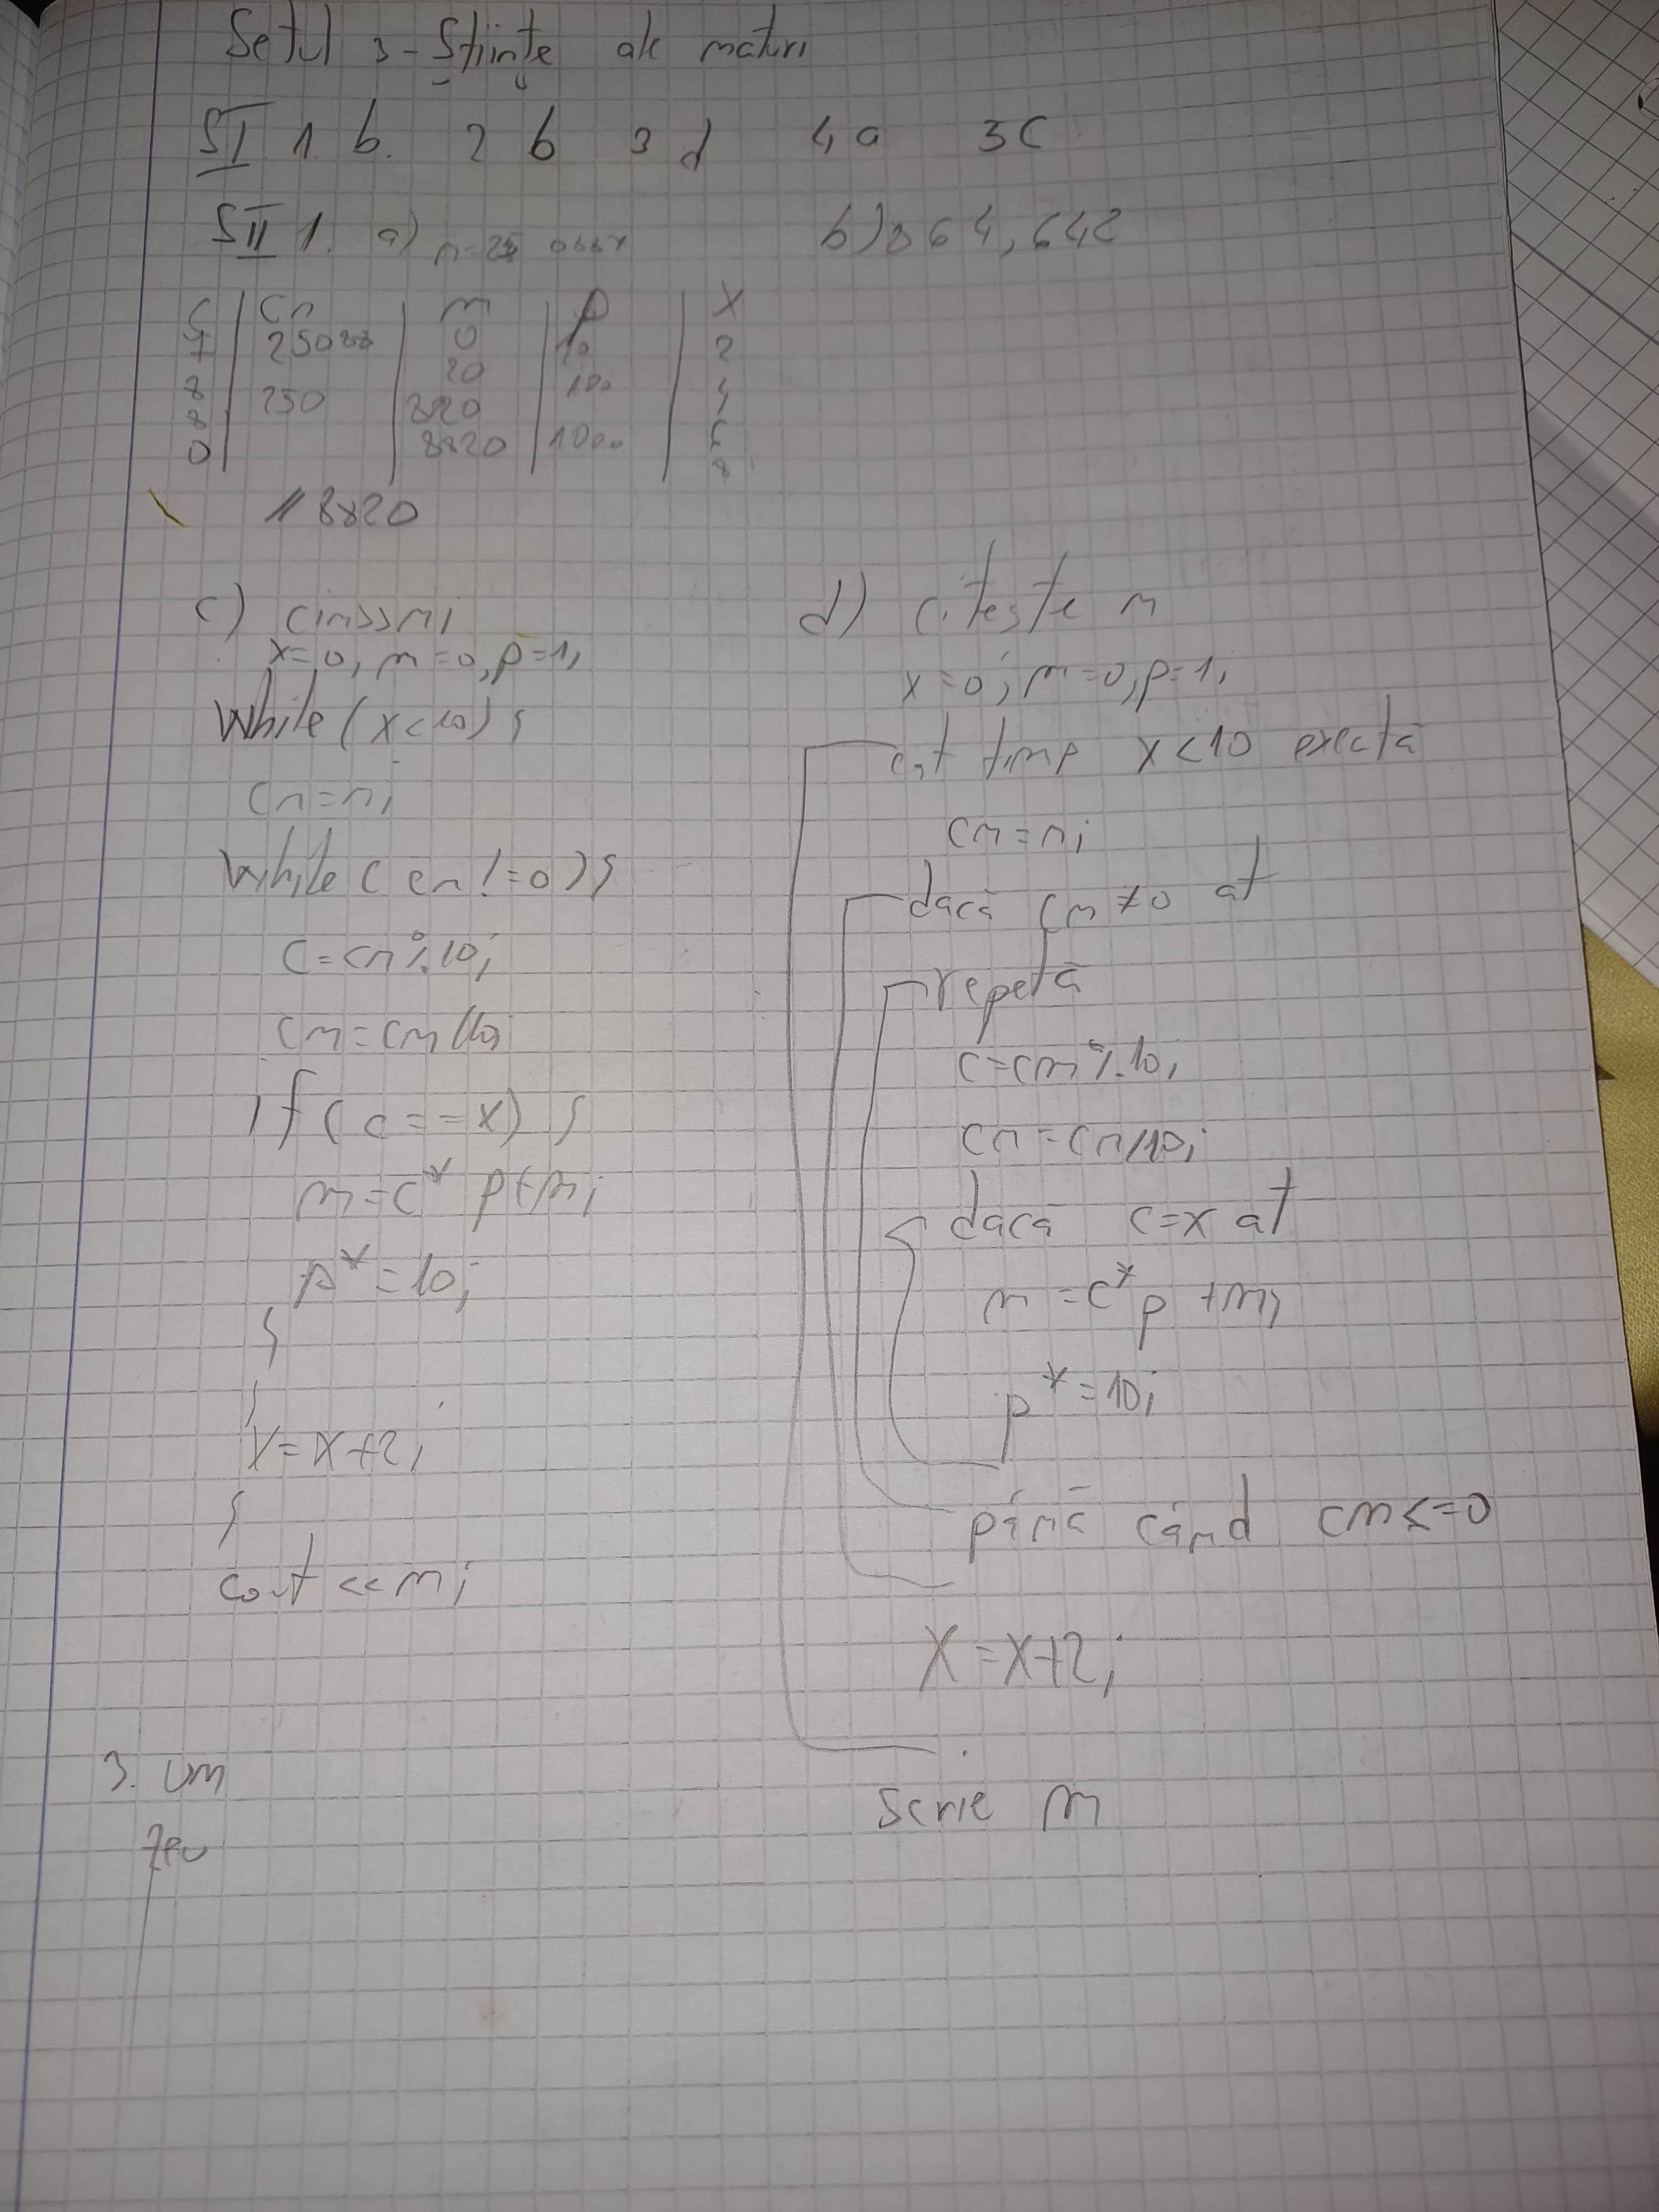 Setul 3 - Științe ale naturi
SI 1. b. 2 b 3 d 4 a 3 C
SII 1. a) b) 864, 642
C Cn m p X
0 10 2
20 100 4
8 250 8820 1000 6
0 8
8820
c) cin>>n;
x=0, m=0, p=1;
While (x<10) {
cn=n;
While (cn!=0) {
c=cn%10;
cn=cn/10;
if (c==x) {
m=c*p+m;
p*=10;
}
}
x=x+2;
}
cout<<m;
3. um
d) citește n
x=0; m=0, p=1;
cât timp x<10 execută
cn=n;
dacă cn≠0 at
repetă
c=cn%10;
cn=cn/10;
dacă c=x at
m=c*p+m;
p*=10;
până când cn<=0
X=X+2;
scrie m